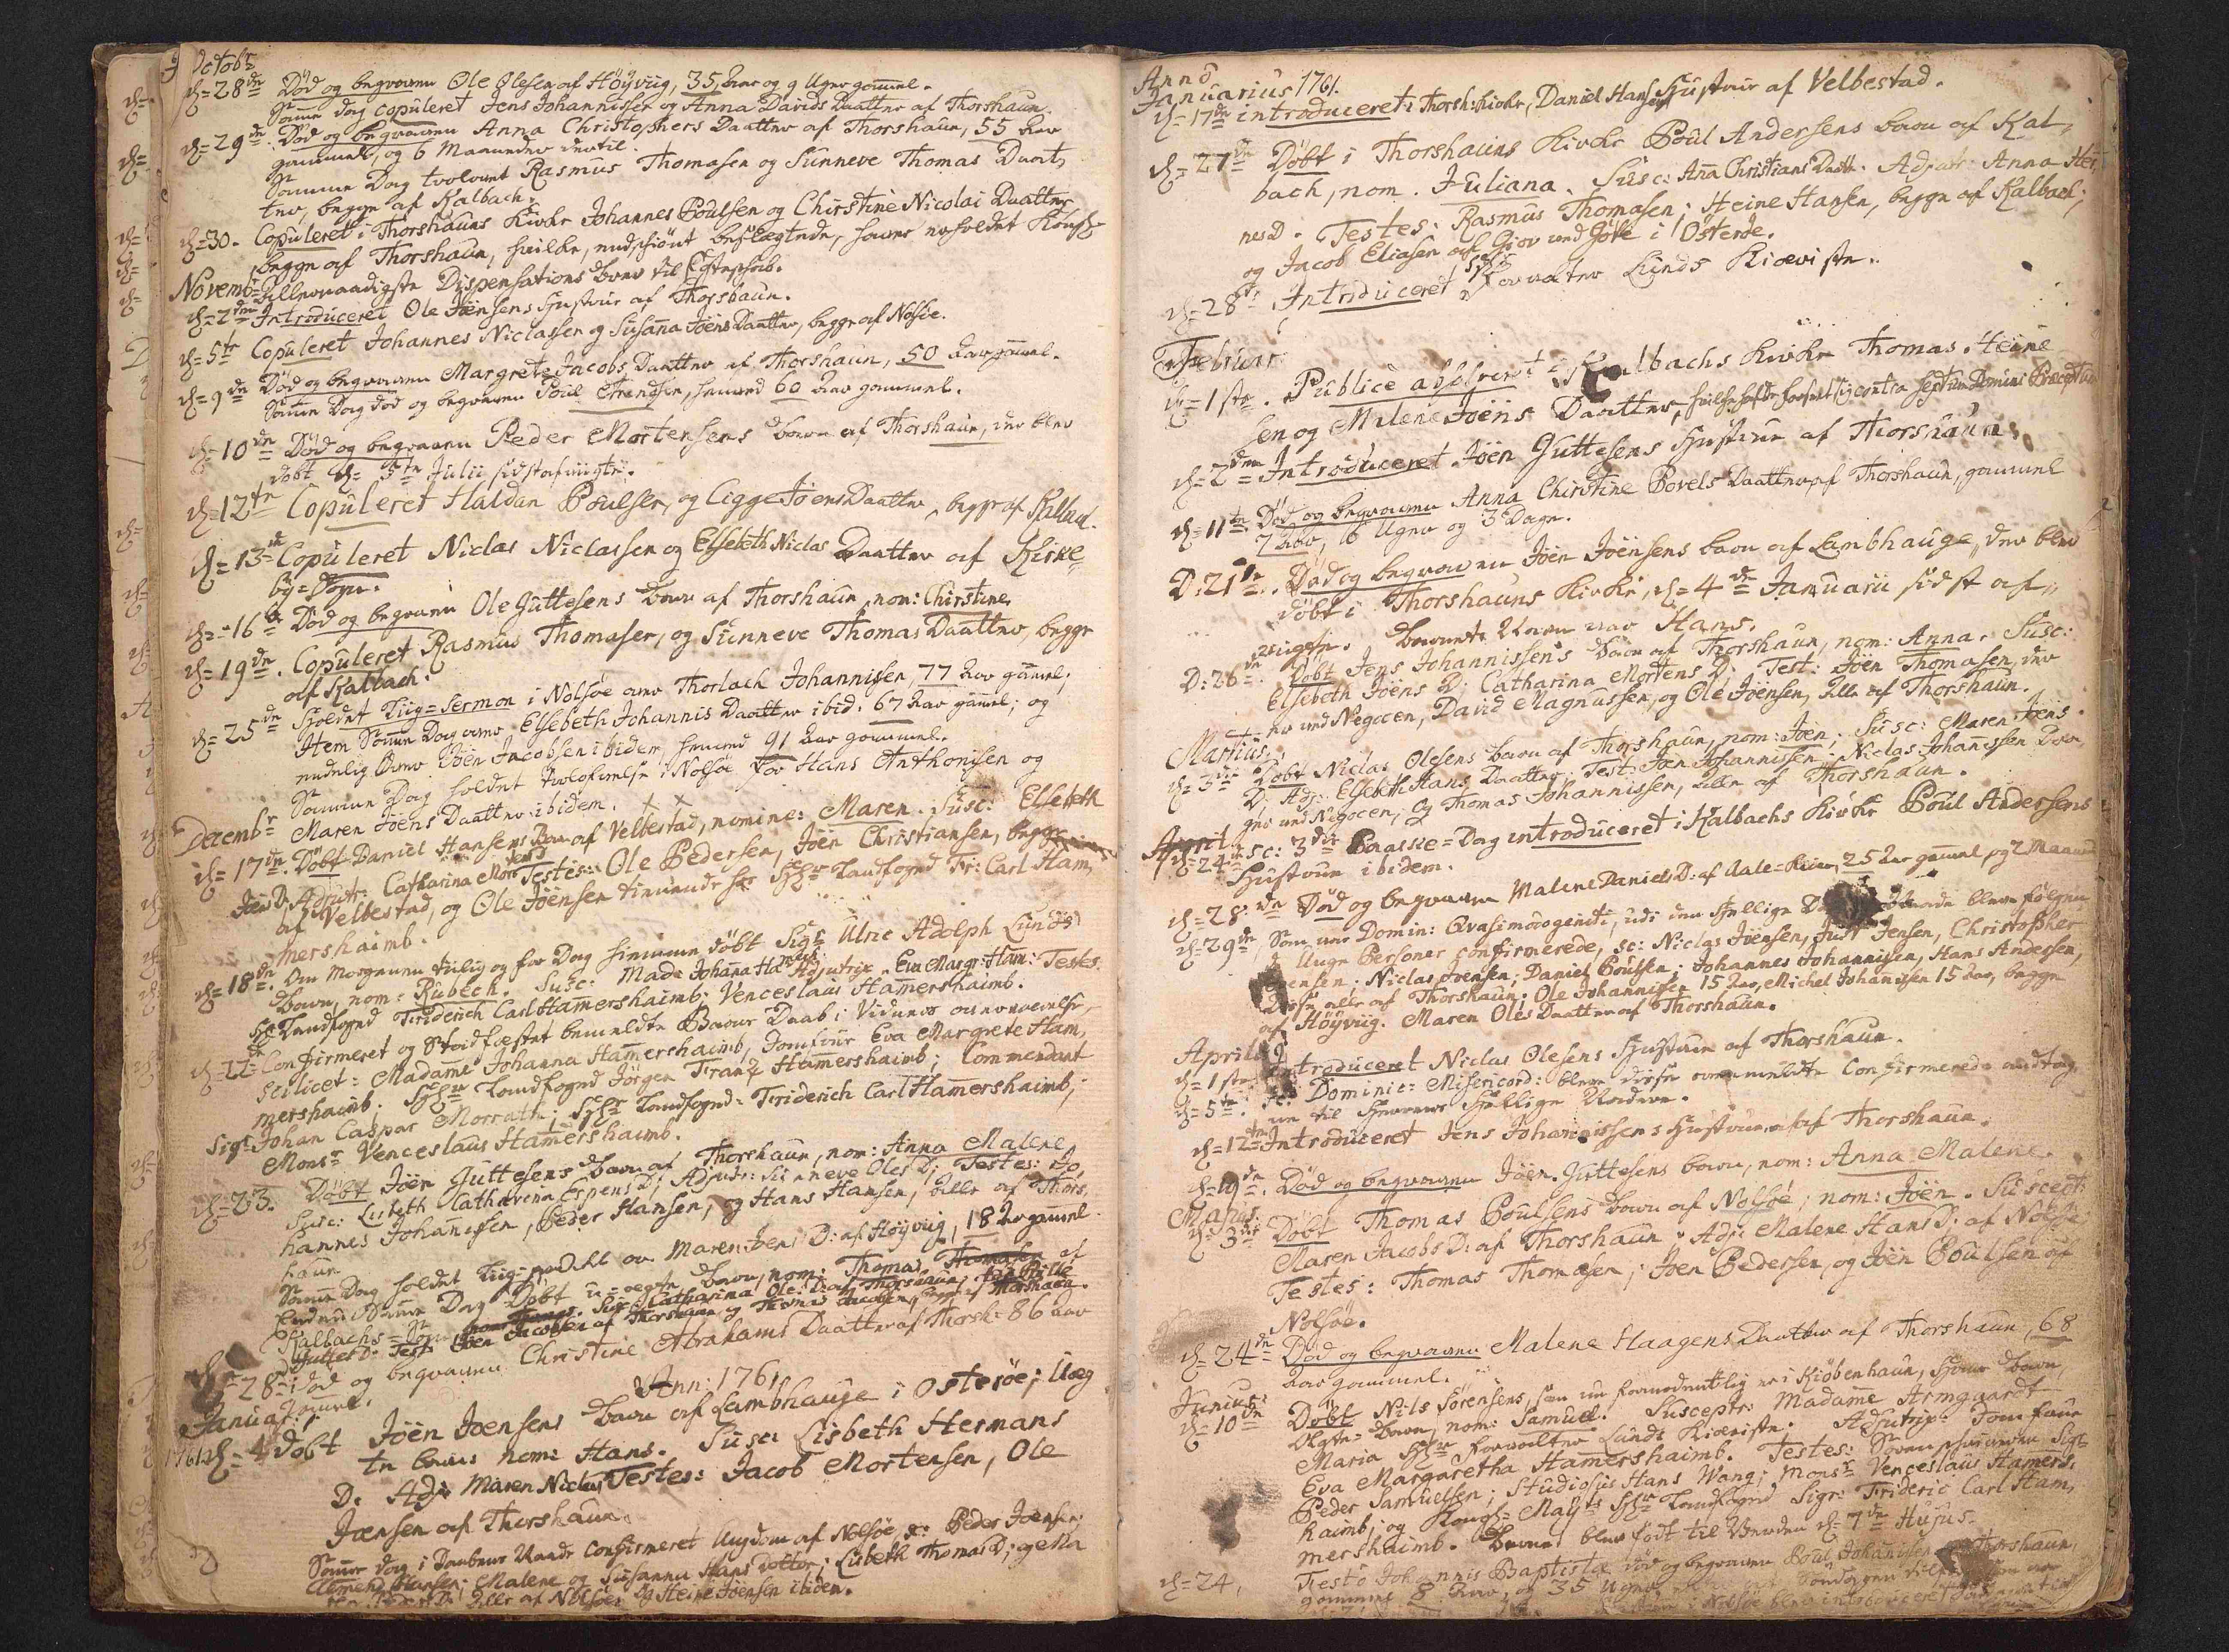 Octobr
d= 28de Död og begraven Ole Olesen af Höÿviig, 35, Aar og 9 Uger gamel.
Same dag copuleret Jens Johannissen og Anna Davids Daatter af Thorshaun.
d= 29de. Död og begraven Anna Christophers Daatter af Thorshaun, 55 Aar
gammel, og 6 Maaneder dertil.
Samme Dag trolovet Rasmus Thomasen og Sünneve Thomas Daat,
ter, begge af Kalbach.
d= 30. Copuleret i Thorshauns Kirke Johannes Poulsen og Christine Nicolai Daatter
begge af Thorshaun, hvilke, endskiönt beslægtede, haver erholdet Kongl.
Novemb= Allernaadigste Dispensations brev til Egteskab.
d= 2den Introduceret Ole Jöensens Hustrue af Thorshaun.
d= 5te Copuleret Johannes Niclassen og Susana Jöens Daatter, begge af Nolsöe.
d= 9de Död og begraven Margrete Jacobs Daatter af Thorshaun, 50 Aar gamel.
Same Dag död og begraven Poul Trondsen, henved 60 Aar gammel.
d= 10de Död og begraven Peder Mortensens barn af Thorshaun, der blev
döbt d= 5te Julii sidstafvigte.
d= 12te Copuleret Haldan Poulsen, og Ligge Jöens Daatter, begge af Kalbach.
d= 13= Copuleret Niclas Niclassen og Elsebeth Niclas Daatter af Kirke=
bÿ=Sogn.
d= 16de Död og begraven Ole Guttesens barn af Thorshaun, nom: Christine.
d= 19de. Copuleret Rasmus Thomasen, og Sünneve Thomas Daatter, begge
af Kalbach.
d= 25de Holdet Liig=Sermon i Nolsöe over Thorlach Johannisen, 77 Aar gamel;
Item Same Dag over Elsebeth Johannis Daatter ibid. 67 Aar gamel; og
endelig over Jöen Jacobsen ibidem, henved 91 Aar gammel.
Samme Dag holdet Trolovelse i Nolsöe for Hans Anthonisen og
Decembr Maren Jöens Daatter ibidem.
d= 17de. Döbt Daniel Hansens Barn af Velbestad, nomine: Maren. Susc: Elsebeth
Jöens D. Adjutr: Catharina Mortens D. Testes: Ole Pedersen, Jöen Christiansen, begge
af Velbestad, og Ole Jöensen tienende hos Hr Landfoged Fr: Carl Ham,
mershaimb.
d= 18de. Om Morgenen tiilig og for Dag hiemme döbt Sigr Ulric Adolph Lunds
Barn, nom: Rubech. Susc: Made Johana Ham: Adjutrix. Eva Margr: Ham: Testes.
Hr Landfoged Friderich Carl Hamershaimb. Venceslaus Hamershaimb.
d= 22= Confirmeret og Stadfæstet bemeldte Barns Daab i Vidners overværelse,
Scilicet: Madame Johanna Hamershaimb, Jomfrue Eva Margrete Ham,
mershaimb; Landfoged Jörgen Franz Hamershaimb; Commendant
Sigr Johan Caspar Morrath; Landfoged= Friderich Carl Hamershaimb;
Monsr Venceslaus Hamershaimb.
d= 23. Döbt Jöen Guttesens Barn af Thorshaun, nom: Anna Malene,
Susc: Lisbeth Catharina Espens D; Adjutr: Sünneve Oles D; Testes: Jo,
hannes Johannissen, Peder Hansen, og Hans Hansen, Alle af Thors,
haun
Same Dag holdet Liig= over Maren Jöens D: af Höÿviig, 18 Aar gamel.
Same Dag Döbt Barn, nom: Thomas Thomasen af
Kalbachs= Susc: Catharina Oles D: af Thorshaun,
Guttes D. Test: Jöen Jacobsen af Thorshaun og Thomas Jacobsen, begge af Thorshaun.
d= 28= död og begraven Christine Abrahams Daatter af Thorsh= 86 Aar
gamel.
Januar: Ann: 1761
1761. d= 4 döbt Jöen Joensens barn af Lambhauge i Osteröe; Uæg
te barn nom: Hans. Susc: Lisbeth Hermans
D. Adj: Maren Niclas Testes: Jacob Mortensen, Ole
Jænsen af Thorshaun.
Same dag i Daabens Naade Confirmeret Ungdom af Nolsöe, sc: Peder Joensen;
Hansen; Malene og Susanna Hans Döttre; Lisbeth Thomas D; og Ma
Alle af Nolsöe; og Heine Jöensen ibidem.
Anno
Januarius 1761.
d= 17de introduceret i Thorsh: Kirke, Daniel Hansens Hustrue af Velbestad.
d= 27de Döbt i Thorshauns Kirke Poul Andersens barn af Kal,
bach, nom. Juliana. Susc: Ana Christians Daatt. Adjutr: Anna Hei
nes D. Testes: Rasmus Thomasen; Heine Hansen, begge af Kalbach;
og Jacob Eliasen af Giov ved Göte i Österöe.
d= 28de Introduceret Forvalter Lunds Kiæriste.
Februar:
d= 1ste. Publicè absolveret i Kalbachs Kirke Thomas Heine
sen og Malene Jöens Daatter, hvilke hafde forseet sig contra sextum Domini Præceptum
d= 2den Introduceret Jöen Guttesens Hustrue af Thorshaun.
d= 11te. Död og begraven Anna Christine Povels Daatter af Thorshaun, gammel
7 Aar, 6 Uger og 3 Dage.
D: 21de. Död og begraven Jöen Jöensens barn af Lambhauge, der blev
döbt i Thorshauns Kirke, d= 4de Januarii sidst af,
vigte. Barnets Navn var Hans.
D: 26de. Döbt Jens Johannissen's barn af Thorshaun, nom: Anna. Susc:
Elsebeth Jöens D; Catharina Mortens D; Test: Jöen Thomasen, der
er ved Negocen, David Magnussen, og Ole Jöensen, Alle af Thorshaun.
Martius.
d= 3de Döbt Niclas Olesens barn af Thorshaun, nom: Jöen; Susc: Maren Jöens
D; Adj: Elsebeth Hans Daatter; Test: Jöen Johannissen; Niclas Johanessen
ved Negocen; og Thomas Johannissen, Alle af Thorshaun.
April.
d= 24= sc: 3die Paasse=Dag introduceret i Kalbachs Kirke Poul Andersens
Hustrue ibidem.
d= 28de Död og begraven Malene Daniels D: af Aale= 25 Aar gamel og 2 Maaned
d= 29de, Som var Domin: Qvasimodogeniti, udi den Hellige bleve fölgen
de Unge Personer confirmerede, sc: Niclas Jöensen, Just Jensen, Christopher
Jensen; Niclas Joensen; Daniel Poulsen; Johannes Johannisen, Hans Andersen,
disse alle af Thorshaun; Ole Johannisen 15 Aar, Michel Johanissen 15 Aar, begge
af Höÿviig. Maren Oles Daatter af Thorshaun.
April
d= 1ste Introduceret Niclas Olesens Hustrue af Thorshaun.
d= 5te. sc: Dominic: Misericord: bleve disse ommeldte Confirmerede antag,
ne til Herrens Hellige Nadvere.
d= 12te Introduceret Jens Johannissens Hustrue af Thorshaun.
d= 19de. Död og begraven Jöen Guttesens barn, nom: Anna Malene.
Majus.
d= 3die Döbt Thomas Poulsens barn af Nolsöe; nom: Jöen. Suscept:
Maren Jacobs D: af Thorshaun. Adj: Malene Hans D: af Nolsöe
Testes: Thomas Thomasen; Jöen Pedersen, og Jöen Poulsen af
Nolsöe.
d= 24de Död og begraven Malene Haagens Daatter af Thorshaun, 68
Aar gammel.
Junius:
d= 10de Döbt Nils Sörensens, som nu formodentlig er i Kiöbenhaun, Barn,
Barn, nom: Samuel. Susceptr: Madame Armgaardt
Maria Forvalter Lunds Kiæriste. Adjutrix: Jomfrue
Eva Margaretha Hamershaimb. Testes: Sigr
Peder Samuelsen; Studiosus Hans Wang; Monsr Venceslaus Hamers,
haimb; og Kongl: Maÿts Landfoged Sigr: Frideric Carl Ham,
mershaimb. Barnet blev födt til Verden d= 7de Hujus.
d= 24, Festo Johannis Baptistæ död og begraven Poul Johanisen Thorshaun,
gammel 8 Aar, og 35 Uger.
i Nolsöe blev introduceret